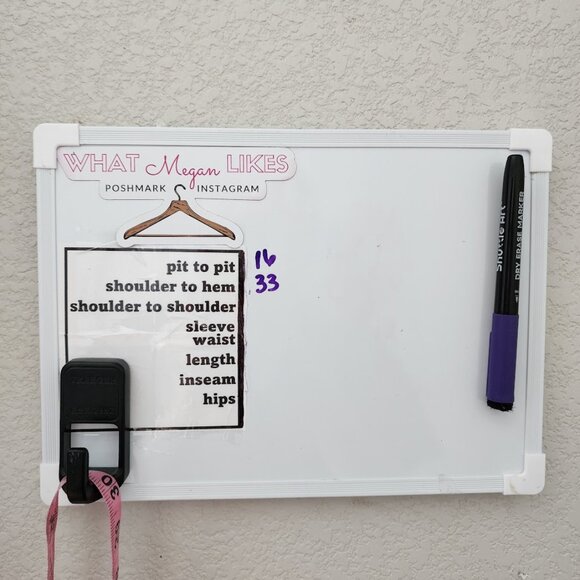 WHAT Megan LIKES
POSHMARK INSTAGRAM
pit to pit 16
shoulder to hem 33
shoulder to shoulder
sleeve
waist
length
inseam
hips
Shuttle Art
DRY ERASE MARKER
30